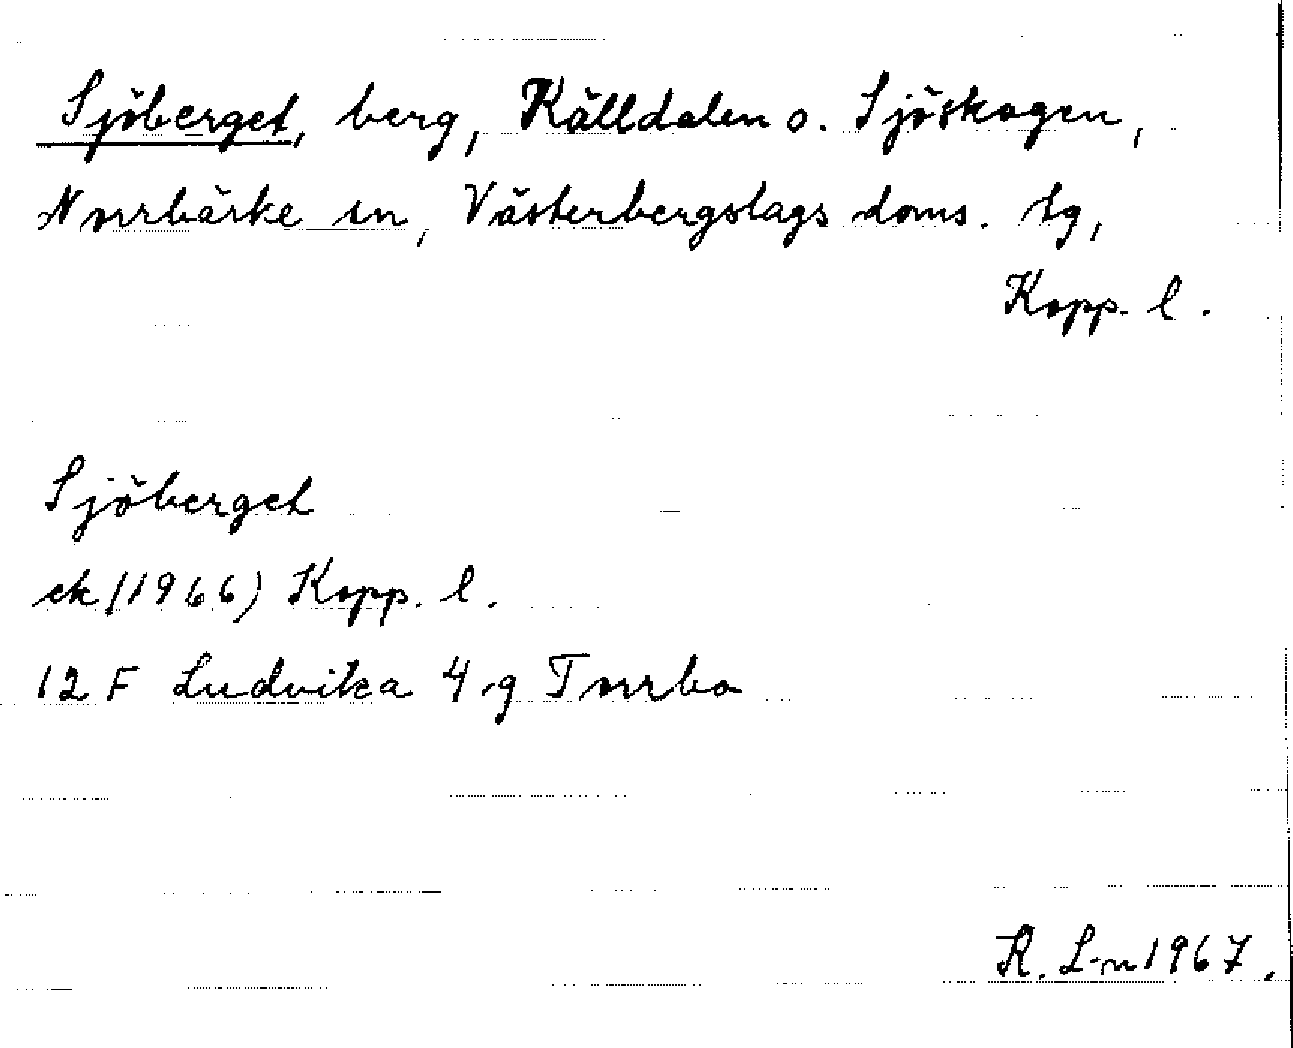 Sjöberget, berg, Källdalen o. Sjöskogen,
Norrbärke sn, Västerbergslags doms. tg,
Kopp. l.
Sjöberget
ek (1966) Kopp. l.
12 F Ludvika 4 g Torrbo
R. L-n 1967.